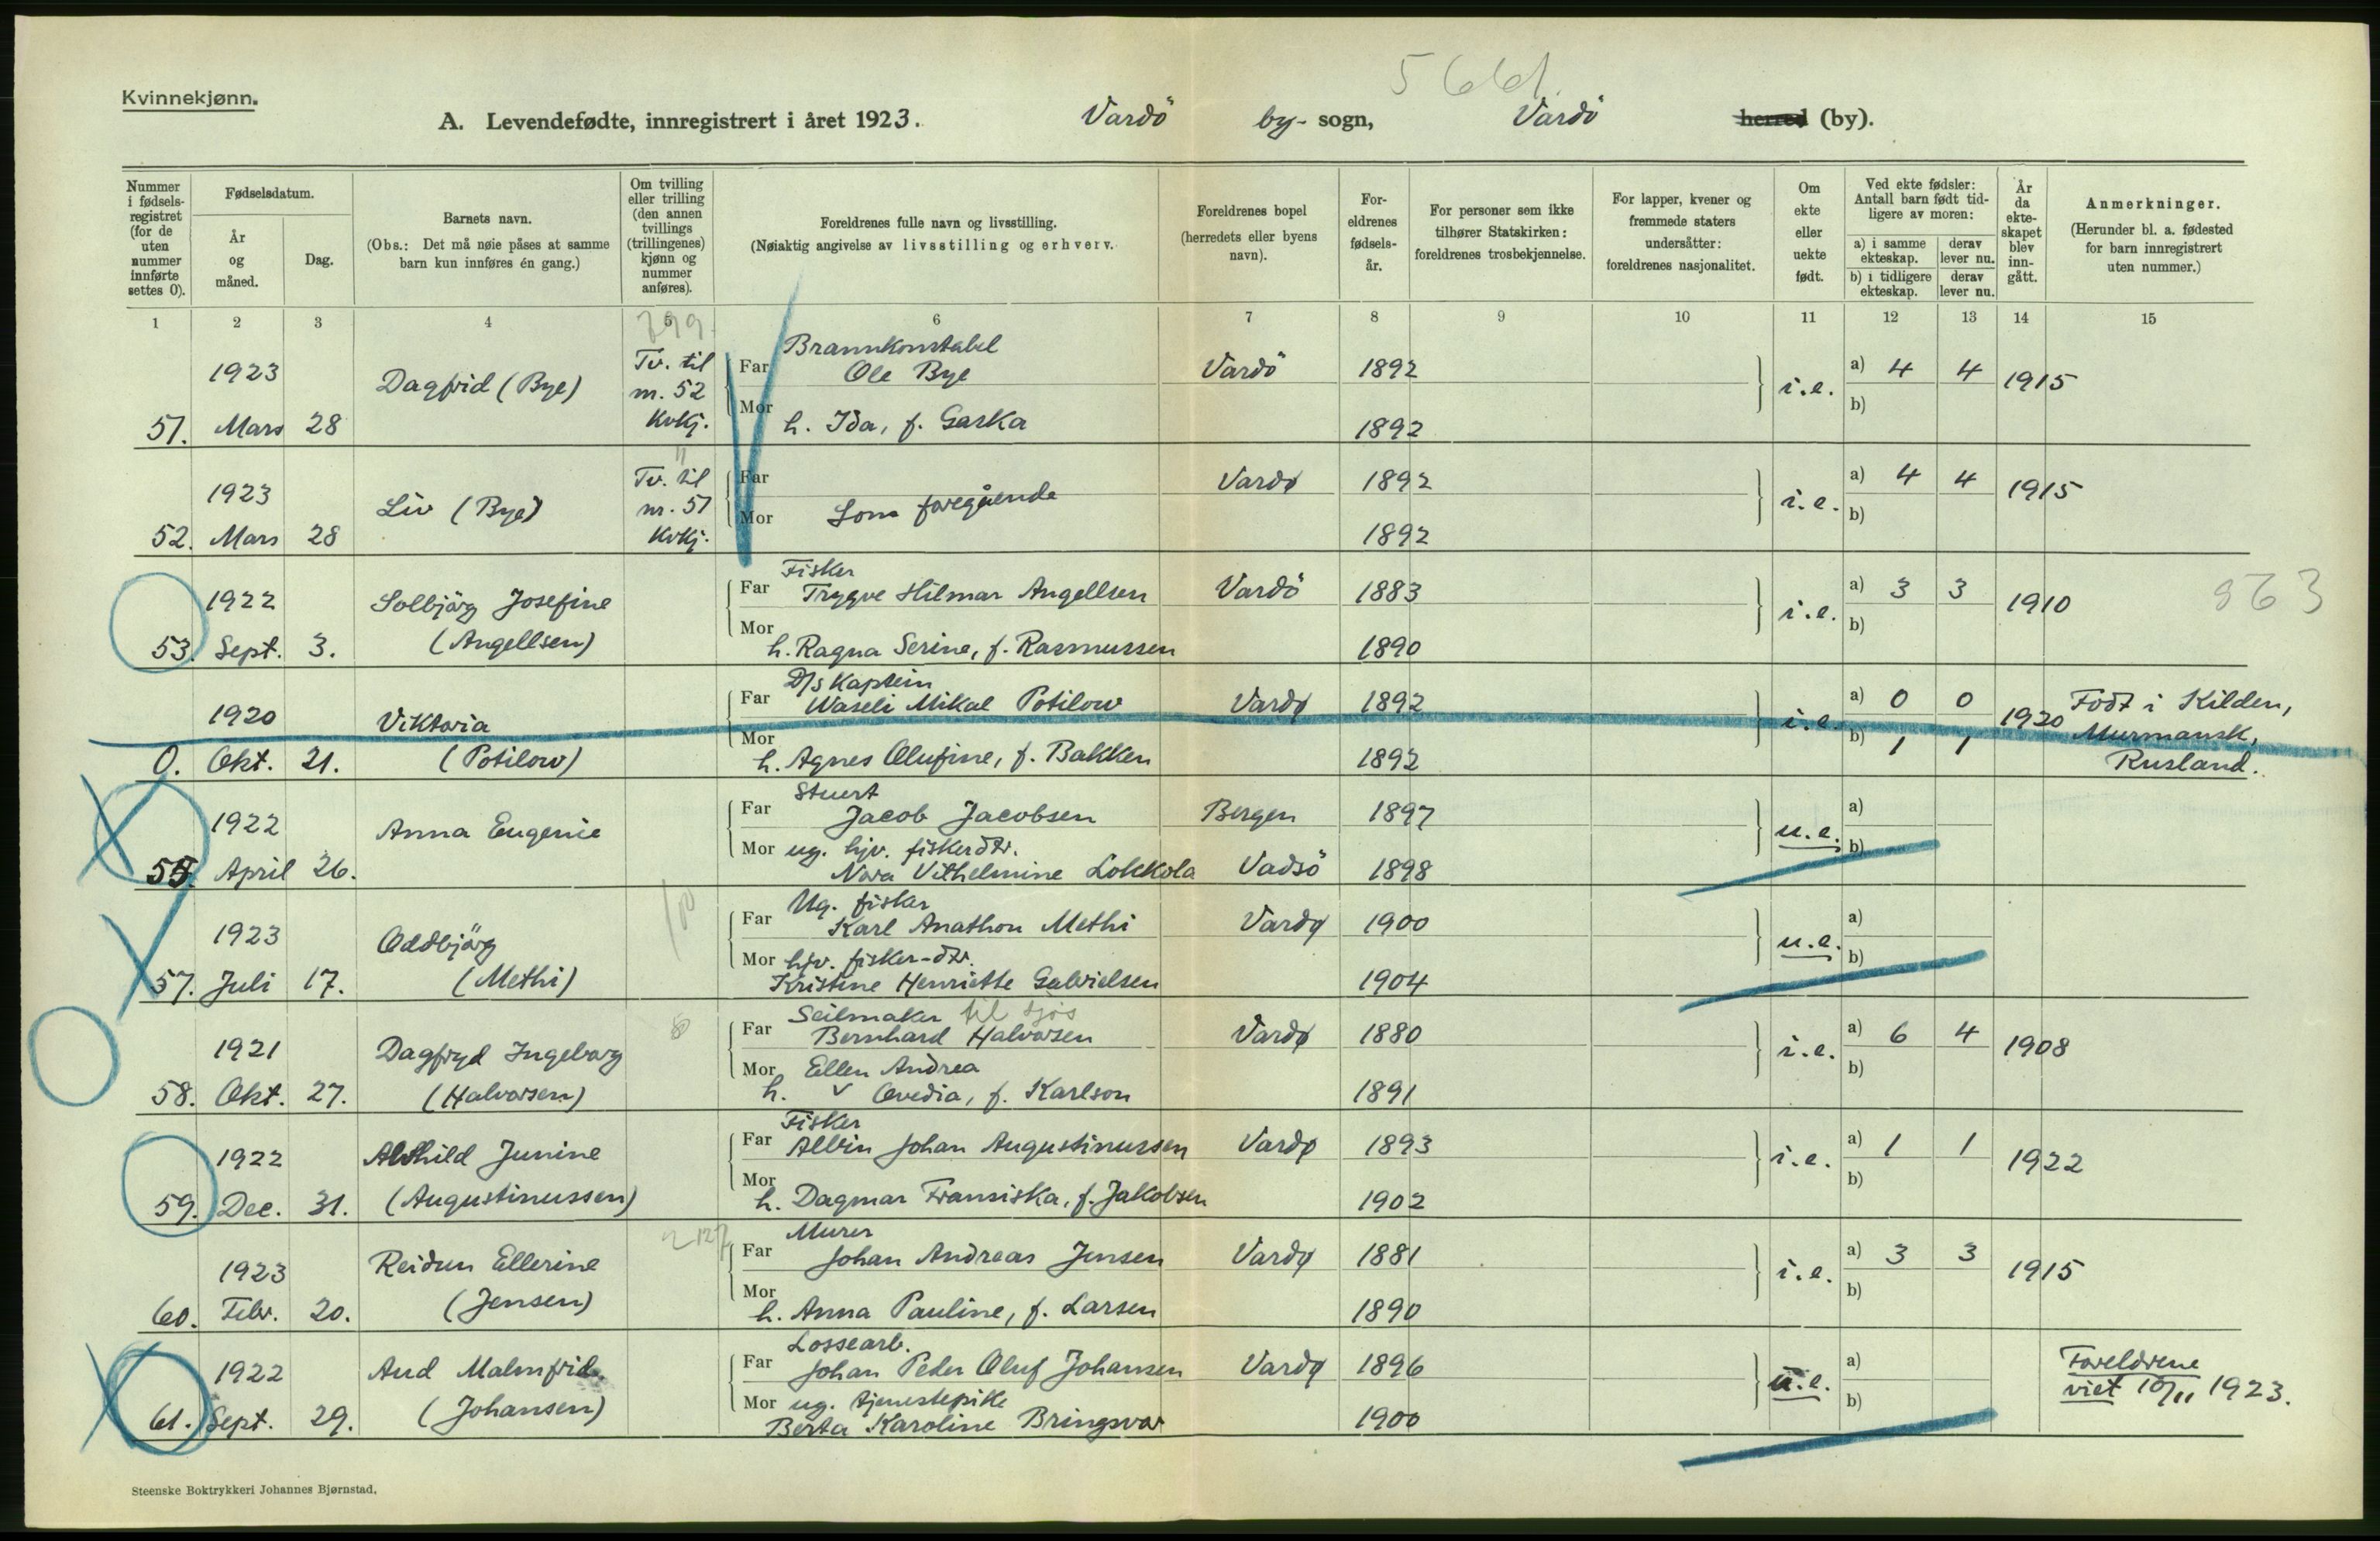 5661.
Kvinnekjønn.
A. Levendefødte, innregistrert i året 1923. Vardö by- sogn, Vardö herred (by).
Nummer i fødsels-registret (for de uten nummer innførte settes 0).
Fødselsdatum.
År og måned.
Dag.
Barnets navn.
(Obs.: Det må nøie påses at samme barn kun innføres én gang.)
Om tvilling eller trilling (den annen tvillings (trillingenes) kjønn og nummer anføres).
Foreldrenes fulle navn og livsstilling.
(Nøiaktig angivelse av livsstilling og erhverv.
Foreldrenes bopel (herredets eller byens navn).
For-eldrenes fødsels-år.
For personer som ikke tilhører Statskirken: foreldrenes trosbekjennelse.
For lapper, kvener og fremmede staters undersåtter: foreldrenes nasjonalitet.
Om ekte eller uekte født.
Ved ekte fødsler: Antall barn født tid-ligere av moren:
a) i samme ekteskap.
derav lever nu.
b) i tidligere ekteskap.
derav lever nu.
År da ekte-skapet blev inn-gått.
Anmerkninger.
(Herunder bl. a. fødested for barn innregistrert uten nummer.)
1 2 3 4 5 6 7 8 9 10 11 12 13 14 15
799.
Brannkonstabel
1923 Dagfrid (Bye) Tv. til nr. 52 Kvkj. Far Ole Bye Vardö 1892 i.e. a) 4 4 1915
57. Mars 28 Mor h. Ida, f. Gaska 1892 b)
1923 Liv (Bye) Tv. til nr. 51 Kvkj. Far Vardø 1892 i.e. a) 4 4 1915
52. Mars 28 Mor Som foregående 1892 b)
Fisker
1922 Solbjörg Josefine Far Trygve Hilmar Angellsen Vardö 1883 i.e. a) 3 3 1910 863
53. Sept. 3. (Angellsen) Mor h. Ragna Serine, f. Rasmussen 1890 b)
D/s Kaptein
1920 Viktoria Far Waseli Mikal Potilow Vardø 1892 i.e. a) 0 0 1920 Född i Kilden,
Murmansk,
0. Okt. 21. (Potilow) Mor h. Agnes Olufine, f. Bakken 1892 b) 1 1 Rusland.
Stuert
1922 Anna Eugenie Far Jacob Jacobsen Bergen 1897 u.e. a)
55. April 26. Mor ug. hjv. fiskerdtr.
Nora Vilhelmine Lokkola Vadsö 1898 b)
Ug. fisker
1923 Oddbjörg Far Karl Anathon Methi Vardø 1900 u.e. a)
57. Juli 17. (Methi) Mor hjv. fisker-dtr.
Kristine Henriette Gabrielsen 1904 b)
Seilmaker til sjøs
1921 Dagfryd Ingeborg Far Bernhard Halvorsen Vardø 1880 i.e. a) 6 4 1908
Mor Ellen Andrea
58. Okt. 27. (Halvorsen) h. Ovedia, f. Karlson 1891 b)
Fisker
1922 Alvhild Junine Far Albin Johan Augustinussen Vardø 1893 i.e. a) 1 1 1922
59. Dec. 31. (Augustinussen) Mor h. Dagmar Fransiska, f. Jakobsen 1902 b)
Murer
1923 Reidun Ellerine Far Johan Andreas Jensen Vardø 1881 i.e. a) 3 3 1915
60. Febr. 20. (Jensen) Mor h. Anna Pauline, f. Larsen 1890 b)
Lossearb.
1922 Aud Malmfrid Far Johan Peder Oluf Johansen Vardø 1896 u.e. a) Foreldrene
viet 10/11 1923.
61. Sept. 29. (Johansen) Mor ug. tjenestepike
Berta Karoline Bringsvor 1900 b)
Steenske Boktrykkeri Johannes Bjørnstad.